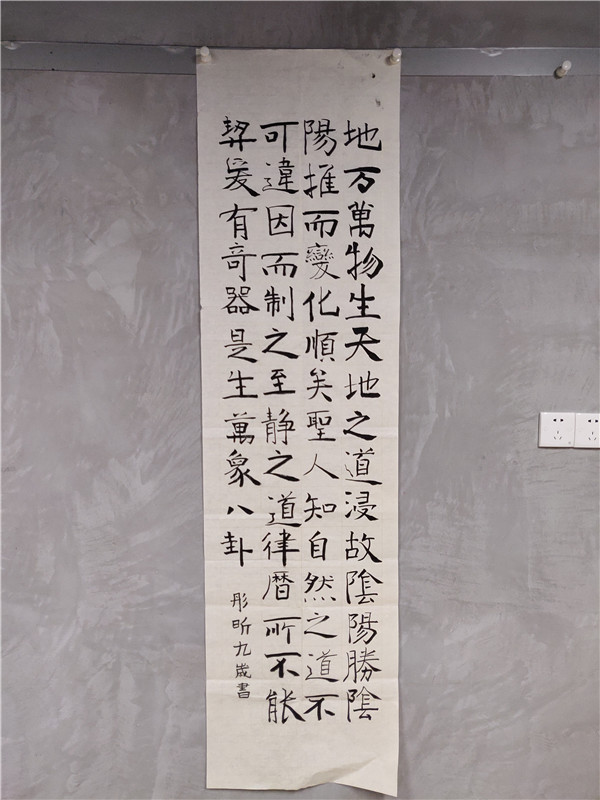 地万萬物生天地之道浸故陰陽勝陰
陽推而變化順矣聖人知自然之道不
可違因而制之至静之道律暦所不能
契爰有奇器是生萬象八卦
彤昕九歲書